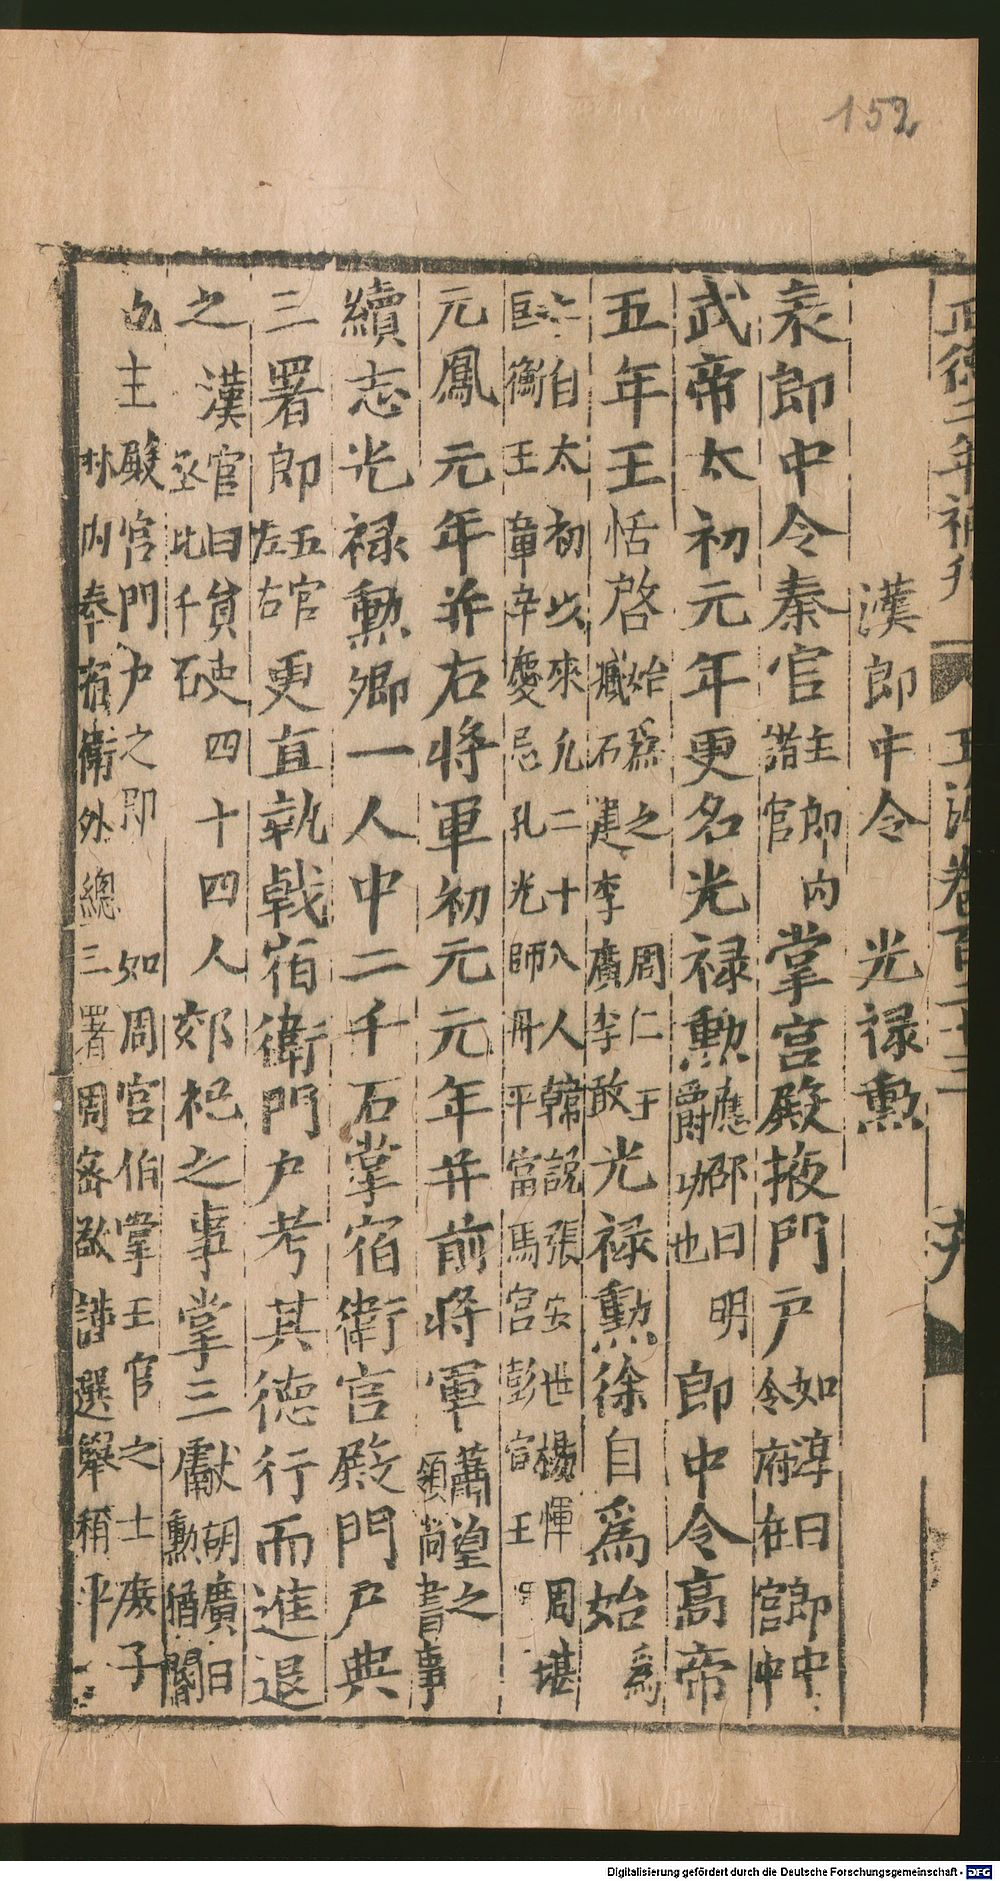 152
正德二年補刊 玉海卷百二十三
漢郎中令 光禄勲
表郎中令秦官主郎内諸官掌宫殿掖門戶如淳曰郎中令府在宫中
武帝太初元年更名光禄勲應邵曰明爵功也郎中令髙帝
五年王恬啓始爲之周仁于臧石建李廣李敢光禄勲徐自爲始爲
之自太初以來凡二十八人韓説張安世楊惲周堪匡衡王章辛慶忌孔光師丹平當馬宫彭宣王
元鳳元年并右將軍初元元年并前將軍蕭望之領尚書事
續志光禄勲卿一人中二千石掌宿衛宫殿門戶典
三署郎五官左右更直執戟宿衛門戶考其徳行而進退
之漢官曰員吏四十四人丞比千石郊祀之事掌三獻胡廣曰勲猶閽
也主殿宫門戶之即如周官宫伯掌王宫之士庻子
林内奉宿衛外總三署周宻敬謹選舉稱平
Digitalisierung gefördert durch die Deutsche Forschungsgemeinschaft - DFG